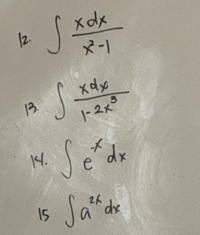 12. ∫ x dx / x² - 1
13. ∫ x dx / 1 - 2x³
14. ∫ e⁻ˣ dx
15 ∫ a²ˣ dx